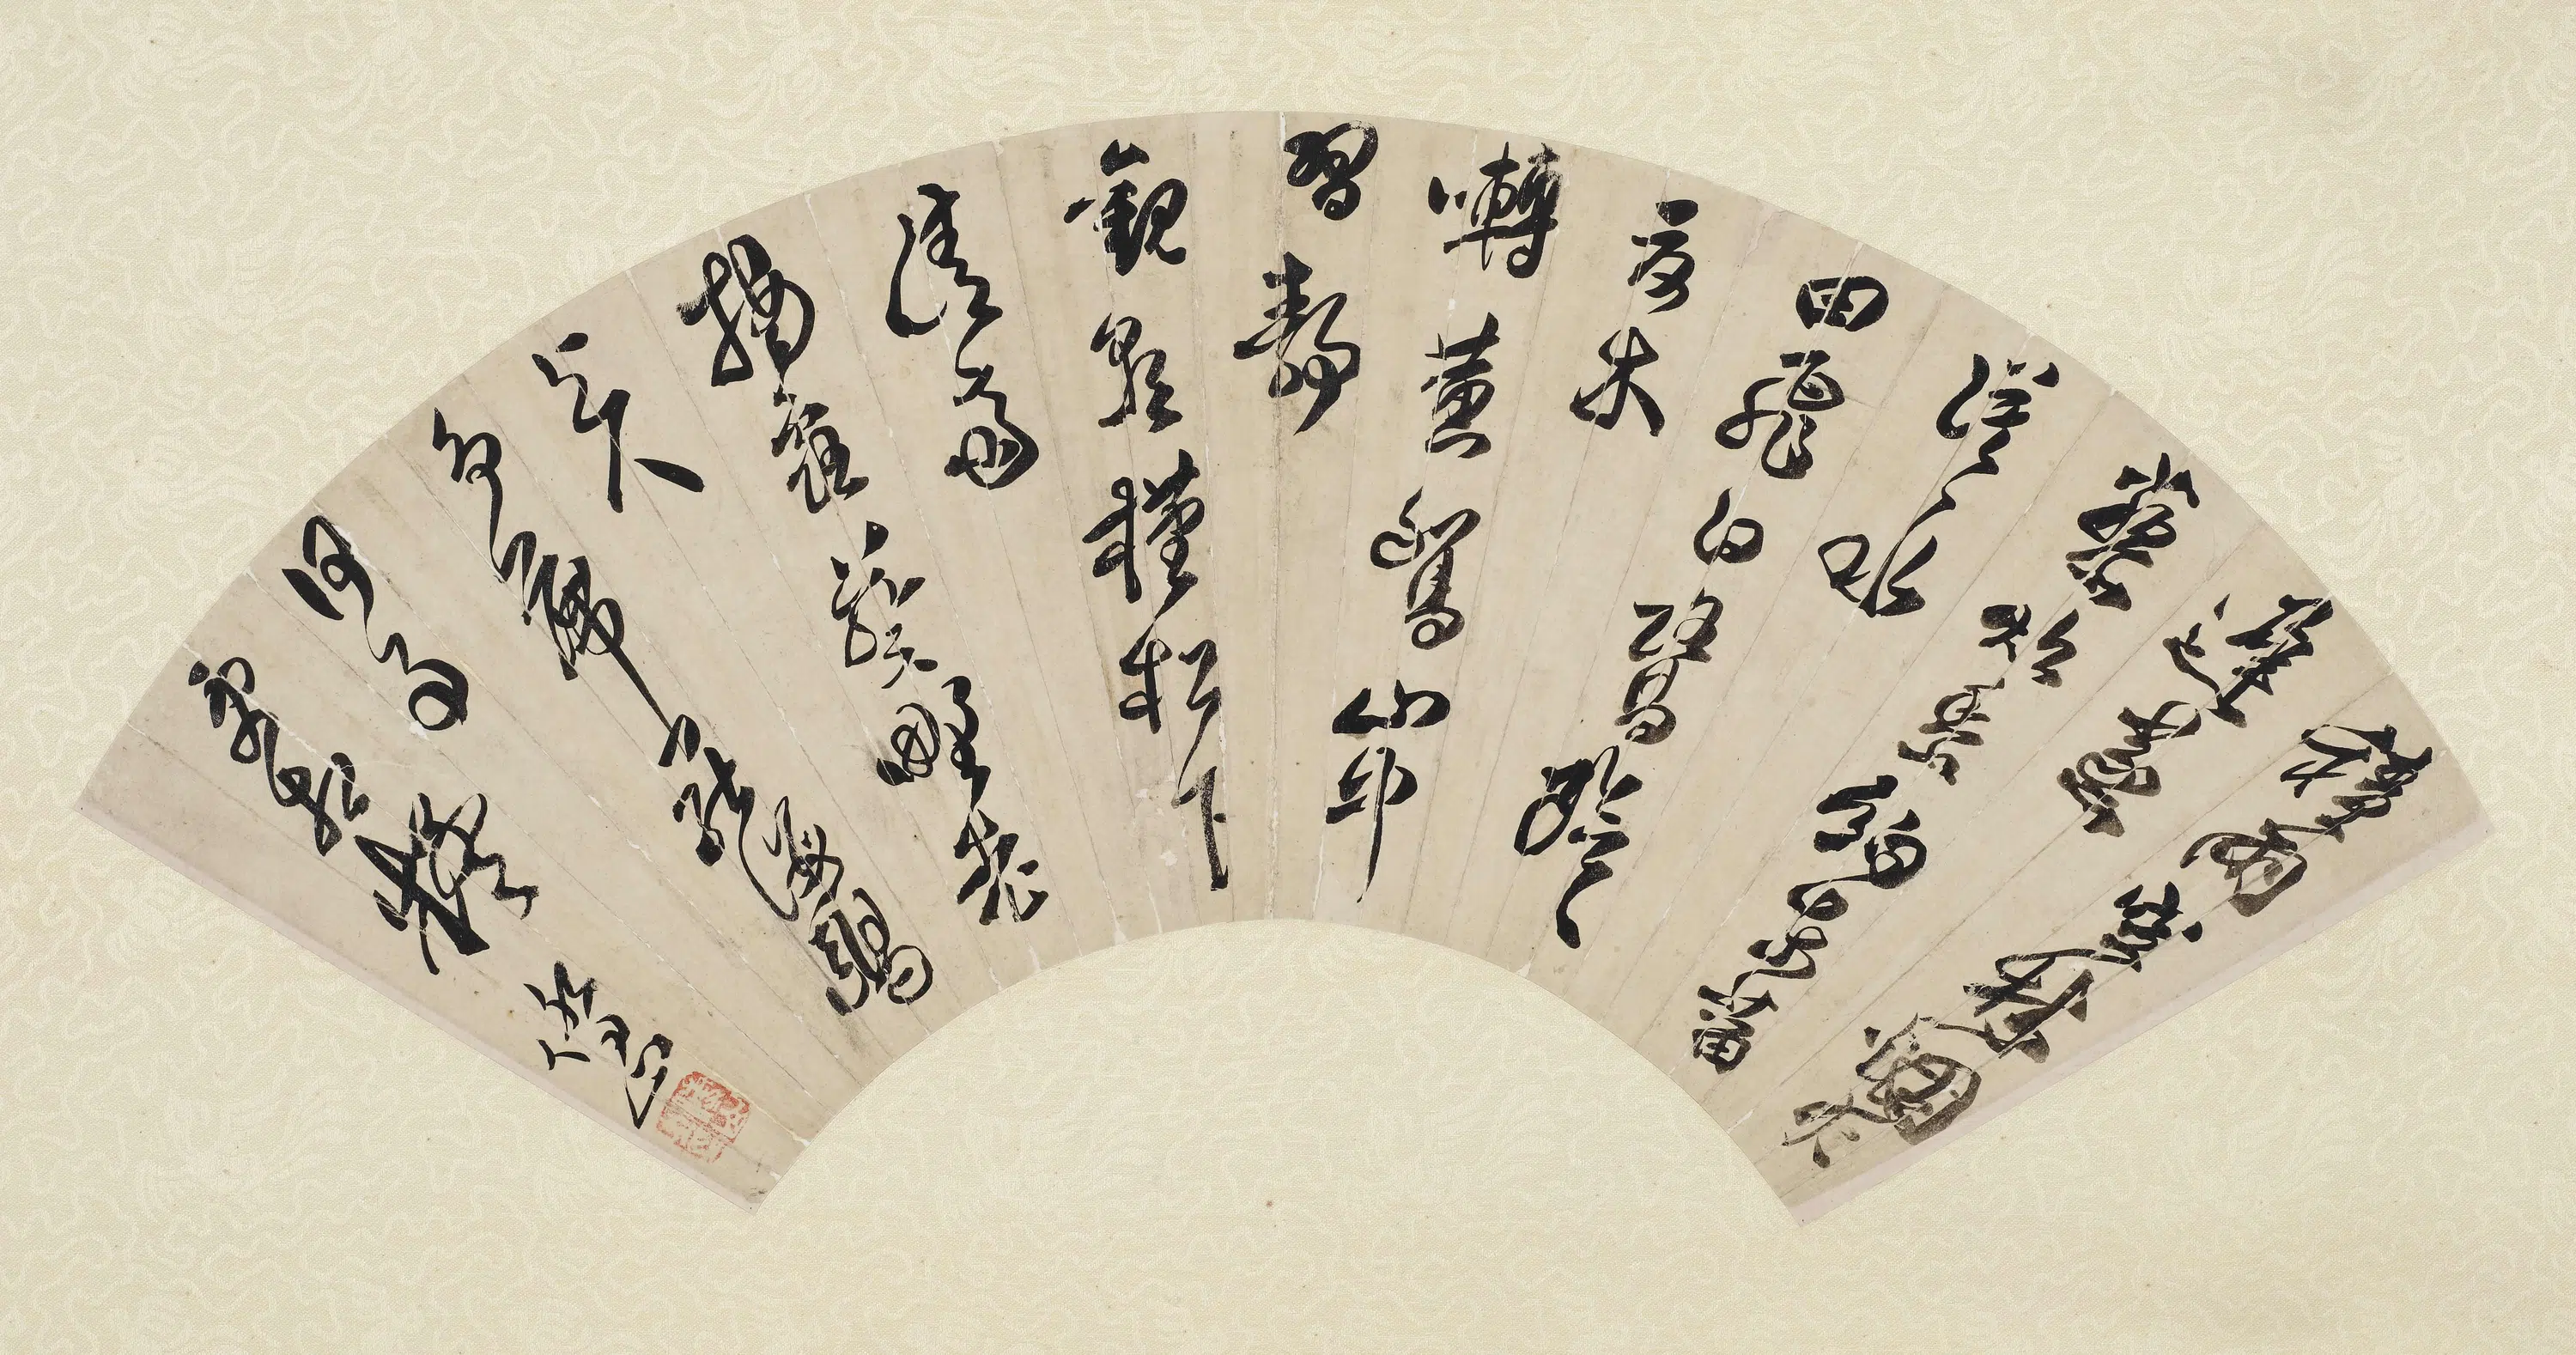 積雨空林煙火
遲蒸
藜炊黍餉東菑
漠漠水
田飛白鷺陰陰
夏木
囀黃鸝山中
習靜
觀朝槿松下
清齋
摘露葵野老
與人
爭席罷海鷗
何事
更相疑